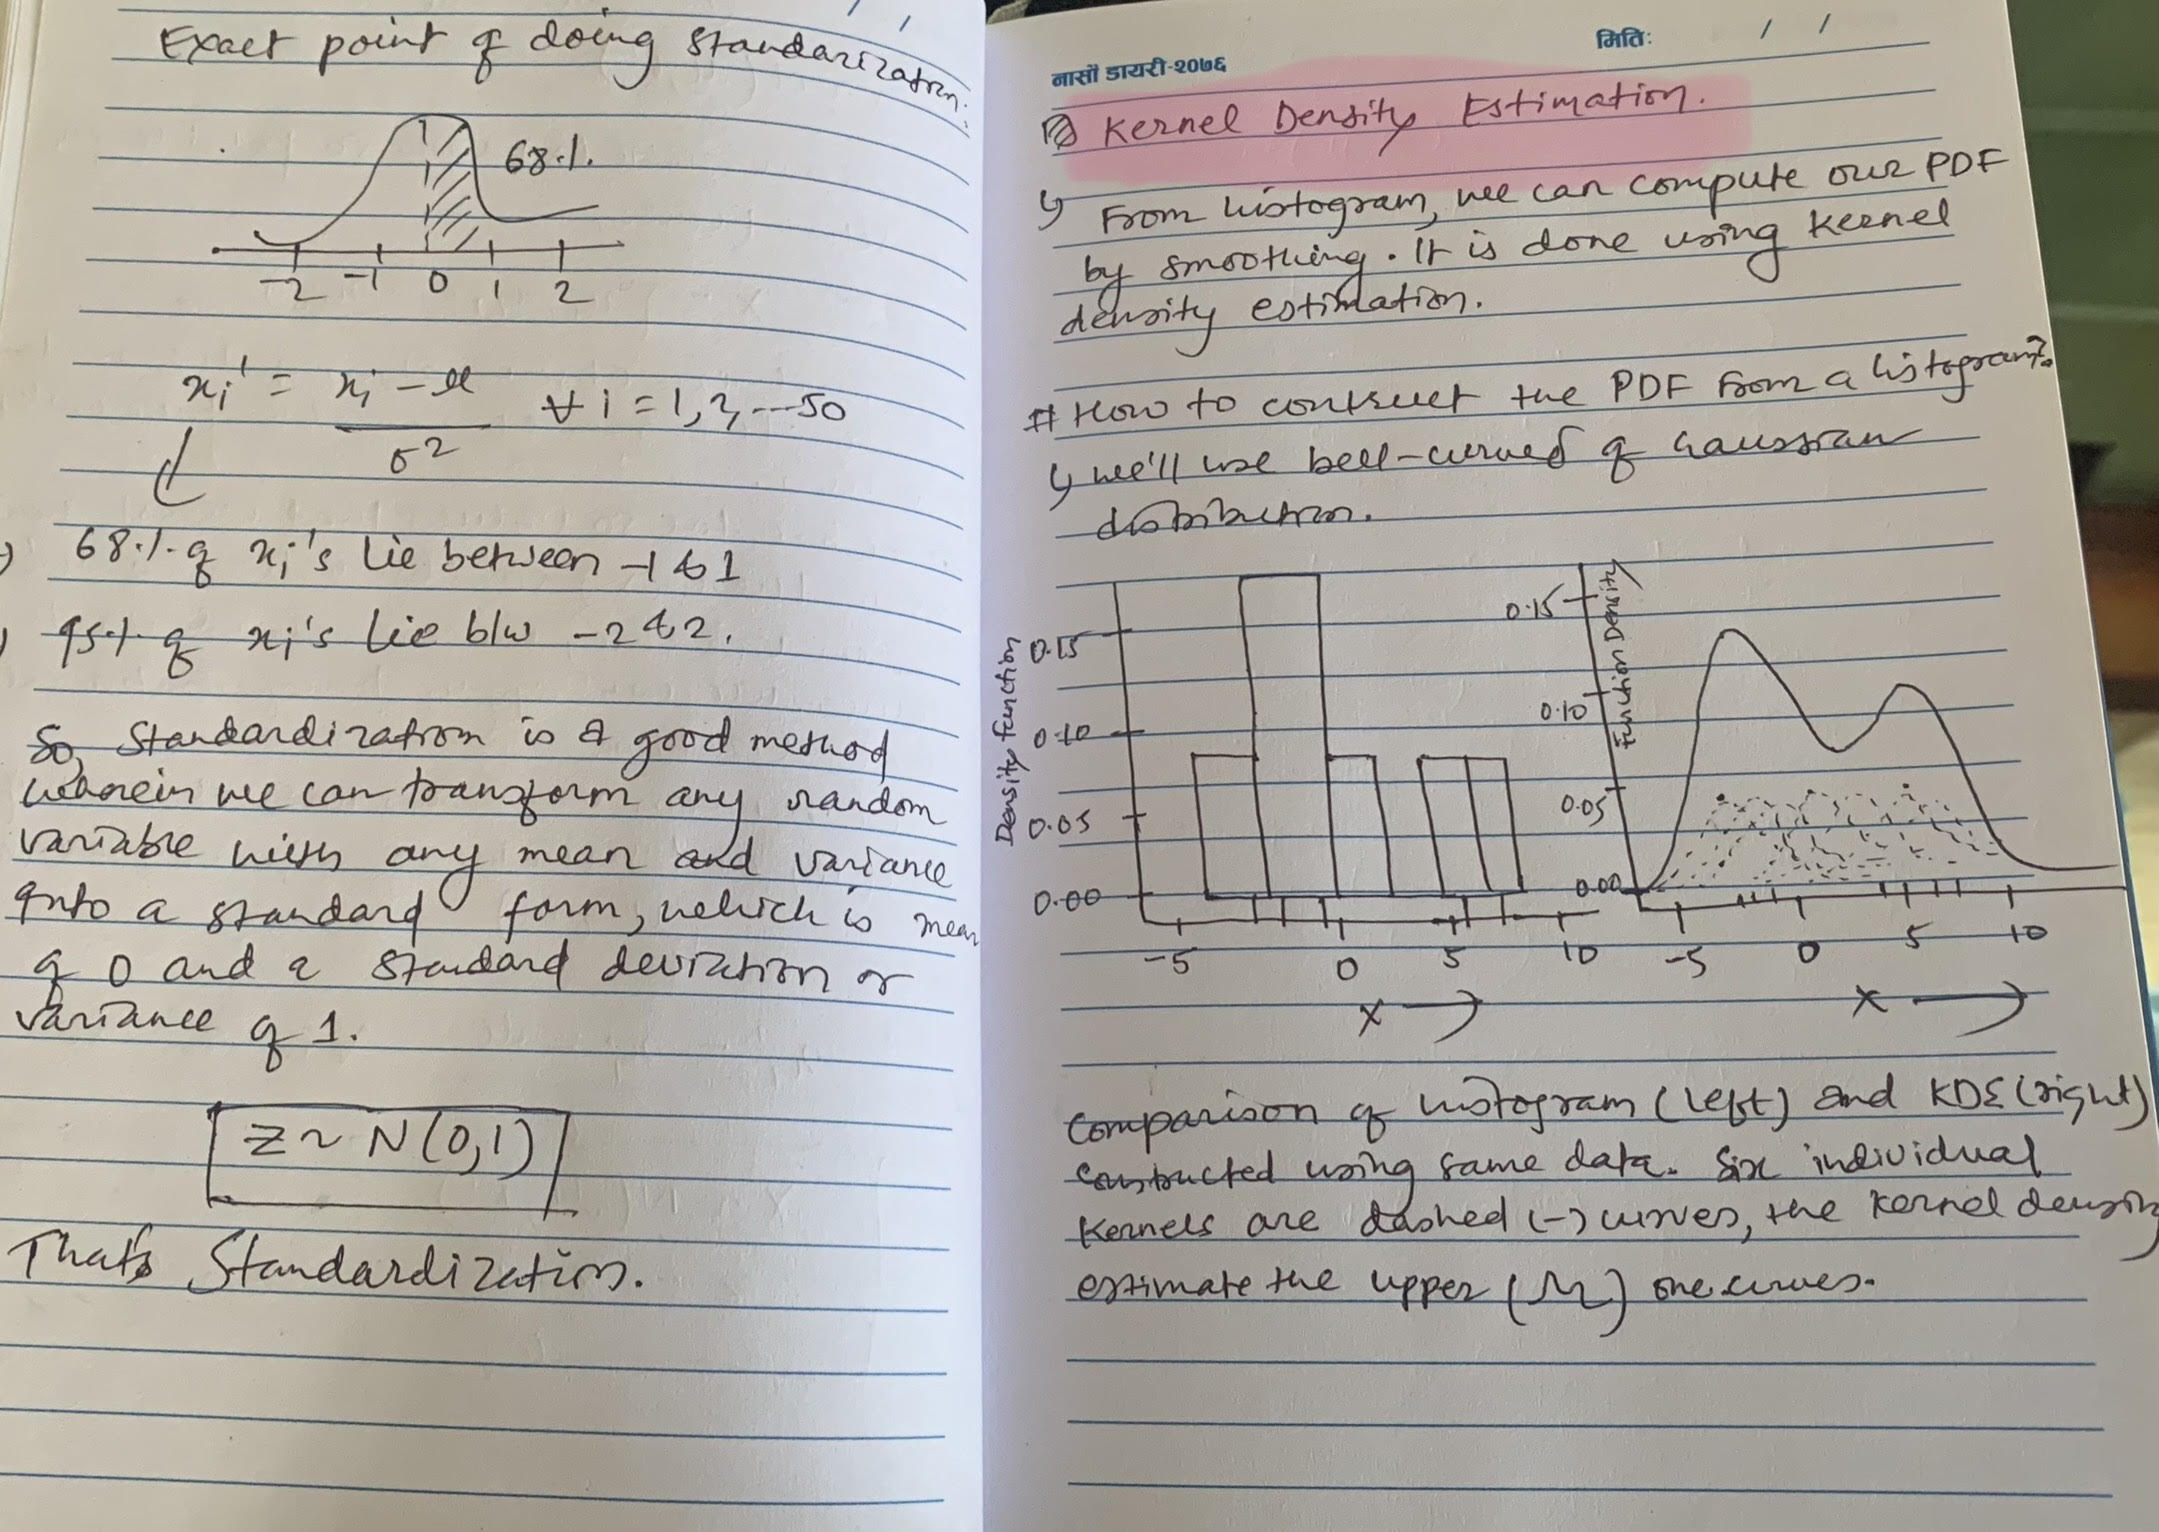 Exact point of doing standarization:
68%.
-2 -1 0 1 2
xi' = xi - μ ∀ i = 1, 2, ---50
σ2
68% of xi's lie between -1 & 1
95% of xi's lie b/w -2 & 2.
So, Standardization is a good method
wherein we can transform any random
variable with any mean and variance
into a standard form, which is mean
of 0 and a standard deviation or
variance of 1.
Z ~ N(0,1)
That's Standardization.
नासौ डायरी-२०७६
मितिः / /
Kernel Density Estimation.
From histogram, we can compute our PDF
by smoothing. It is done using kernel
density estimation.
# How to contruct the PDF from a histogram?
we'll use bell-curved of Gaussian
distribution.
Density function
0.15
0.10
0.05
0.00
-5 0 5 10
X →
Function Density
0.15
0.10
0.05
0.00
-5 0 5 10
X →
Comparison of histogram (left) and KDE (right)
constructed using same data. Six individual
Kernels are dashed (-) curves, the kernel density
estimate the upper ( ) one curves.